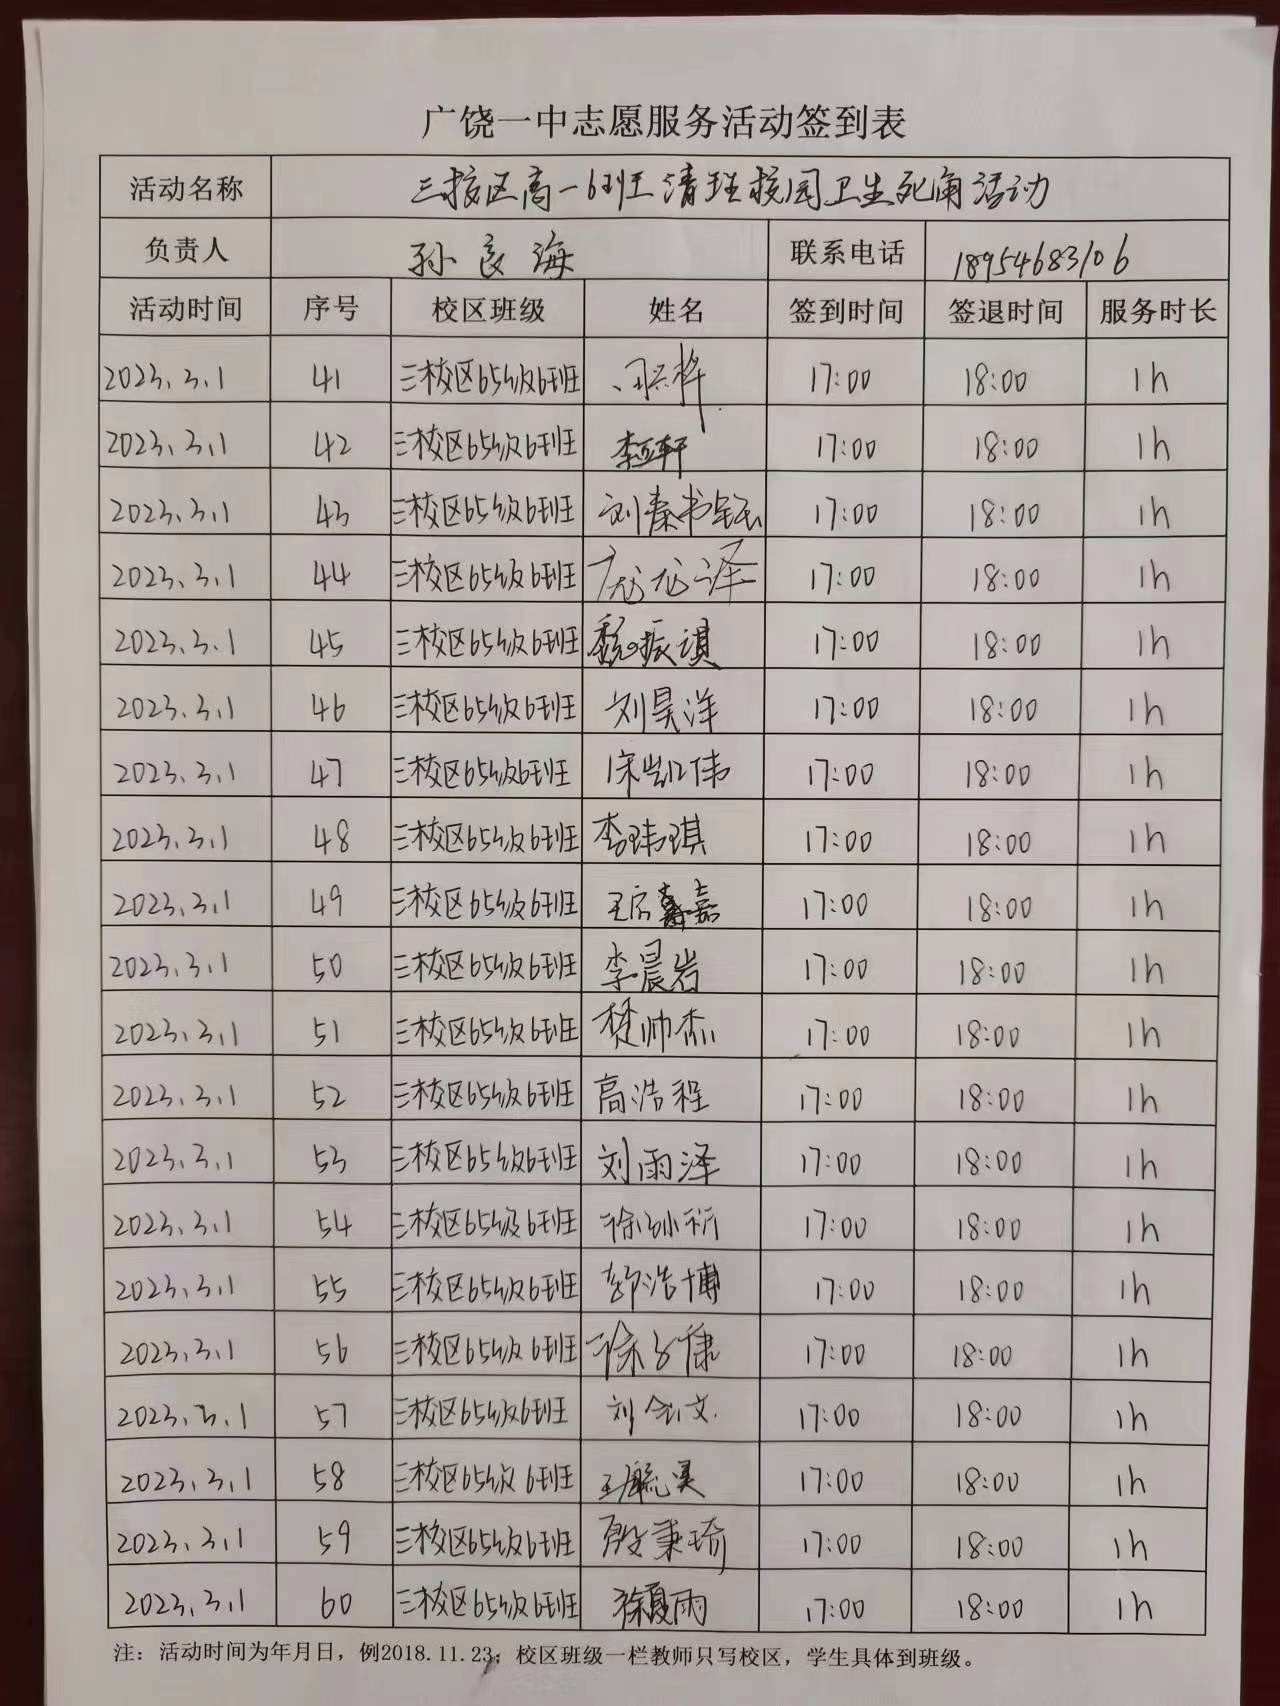 广饶一中志愿服务活动签到表
活动名称 三校区高一6班清理校园卫生死角活动
负责人 孙良海 联系电话 18954683106
活动时间 序号 校区班级 姓名 签到时间 签退时间 服务时长
2023.3.1 41 三校区65级6班 17:00 18:00 1h
2023.3.1 42 三校区65级6班 李亚轩 17:00 18:00 1h
2023.3.1 43 三校区65级6班 刘秦书钰 17:00 18:00 1h
2023.3.1 44 三校区65级6班 庞龙泽 17:00 18:00 1h
2023.3.1 45 三校区65级6班 魏振琪 17:00 18:00 1h
2023.3.1 46 三校区65级6班 刘昊洋 17:00 18:00 1h
2023.3.1 47 三校区65级6班 宋凯伟 17:00 18:00 1h
2023.3.1 48 三校区65级6班 李玮琪 17:00 18:00 1h
2023.3.1 49 三校区65级6班 17:00 18:00 1h
2023.3.1 50 三校区65级6班 李晨岩 17:00 18:00 1h
2023.3.1 51 三校区65级6班 楚帅杰 17:00 18:00 1h
2023.3.1 52 三校区65级6班 高浩程 17:00 18:00 1h
2023.3.1 53 三校区65级6班 刘雨泽 17:00 18:00 1h
2023.3.1 54 三校区65级6班 17:00 18:00 1h
2023.3.1 55 三校区65级6班 郭浩博 17:00 18:00 1h
2023.3.1 56 三校区65级6班 徐子康 17:00 18:00 1h
2023.3.1 57 三校区65级6班 刘会文 17:00 18:00 1h
2023.3.1 58 三校区65级6班 王毓昊 17:00 18:00 1h
2023.3.1 59 三校区65级6班 殷秉琦 17:00 18:00 1h
2023.3.1 60 三校区65级6班 徐夏雨 17:00 18:00 1h
注：活动时间为年月日，例2018.11.23；校区班级一栏教师只写校区，学生具体到班级。